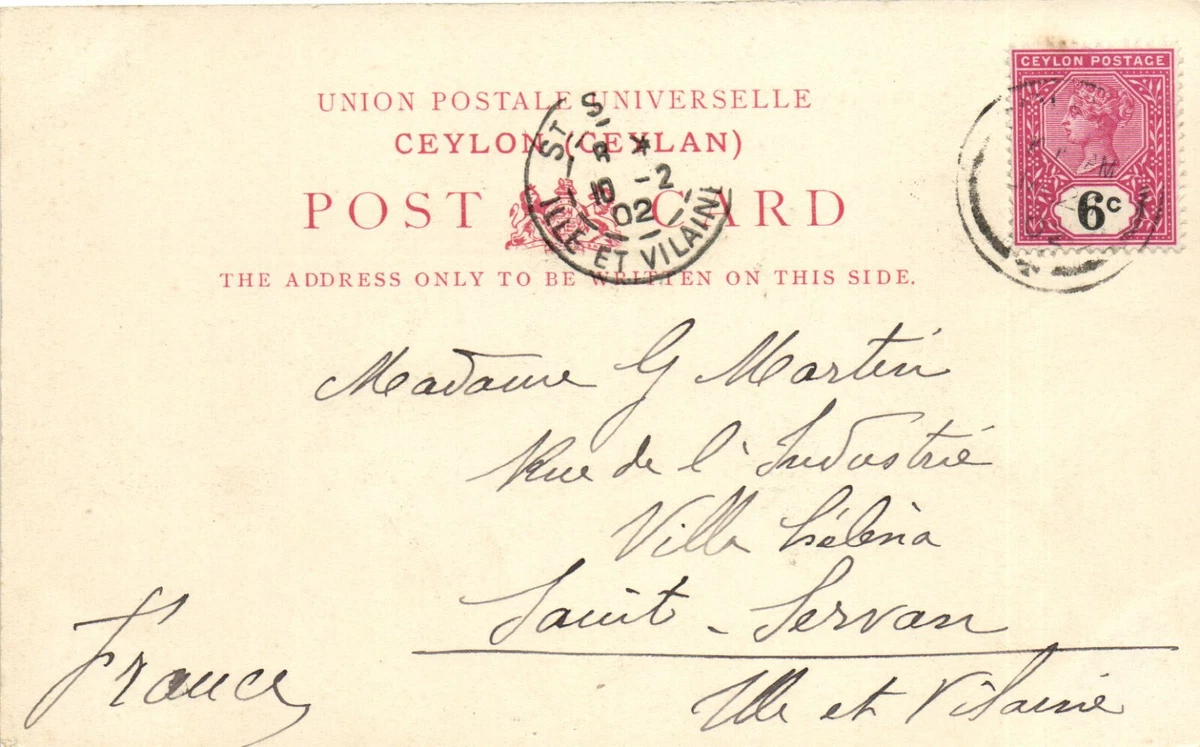 UNION POSTALE UNIVERSELLE
CEYLON (CEYLAN)
POST CARD
THE ADDRESS ONLY TO BE WRITTEN ON THIS SIDE.
CEYLON POSTAGE
6c
ST S
8
10 -2
02
ILLE ET VILAINE
Madame G Martin
Rue de l'Industrie
Villa Héléna
Saint-Servan
Ille et Vilaine
France